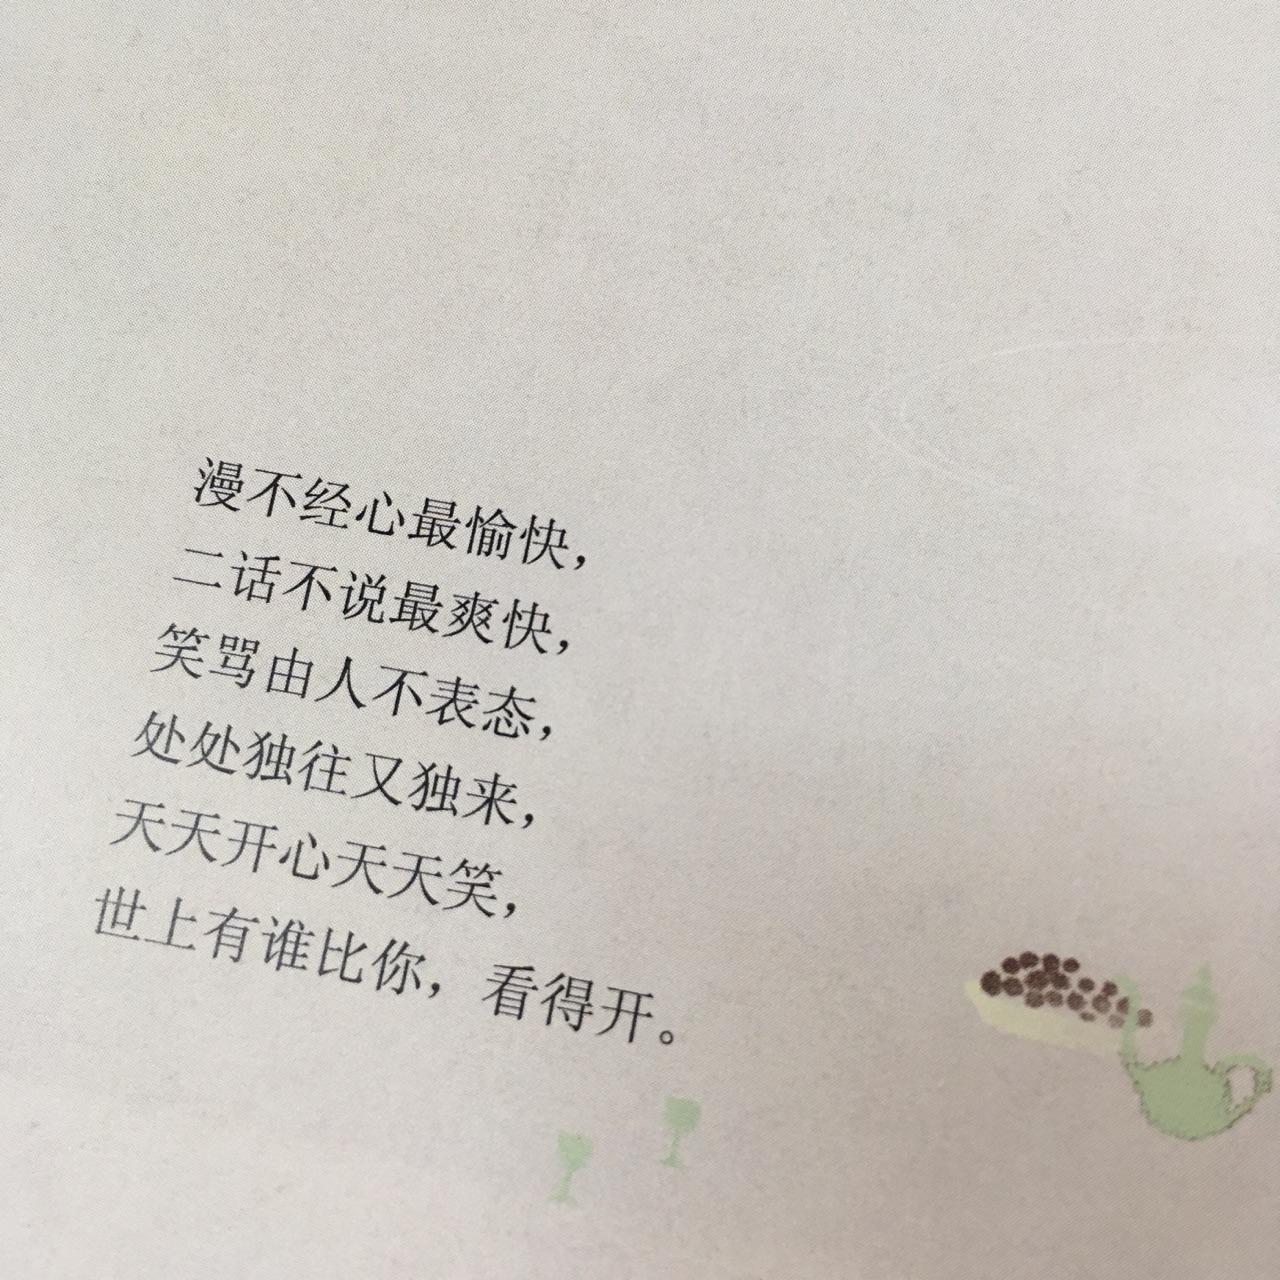 漫不经心最愉快，
二话不说最爽快，
笑骂由人不表态，
处处独往又独来，
天天开心天天笑，
世上有谁比你，看得开。